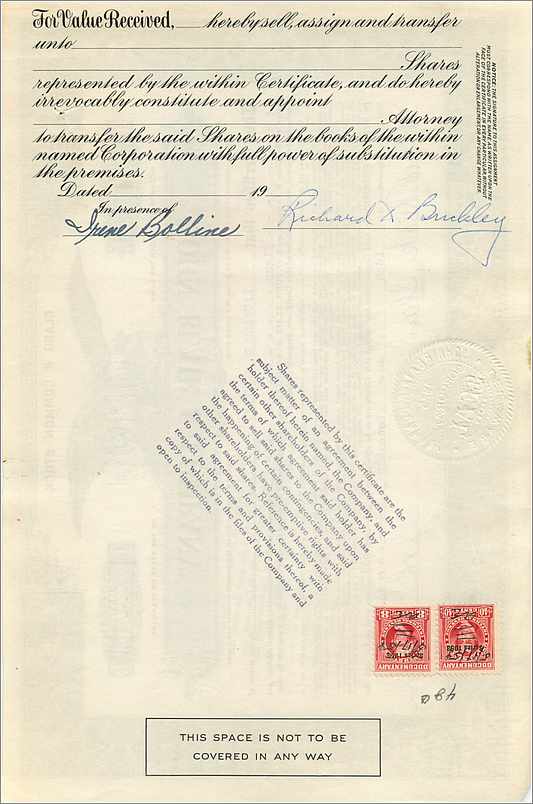 For Value Received, hereby sell, assign and transfer
unto
Shares
represented by the within Certificate, and do hereby
irrevocably constitute and appoint
Attorney
to transfer the said Shares on the books of the within
named Corporation with full power of substitution in
the premises.
Dated 19
In presence of
Irene Bolline
Richard L Buckley
NOTICE: THE SIGNATURE TO THIS ASSIGNMENT
MUST CORRESPOND WITH THE NAME AS WRITTEN UPON THE
FACE OF THE CERTIFICATE, IN EVERY PARTICULAR, WITHOUT
ALTERATION OR ENLARGEMENT OR ANY CHANGE WHATEVER.
Shares represented by this certificate are the
subject matter of an agreement between the
holder thereof herein named, the Company, and
certain other shareholders of the Company, by
the terms of which agreement said holder has
agreed to sell said shares to the Company upon
the happening of certain contingencies, and said
other shareholders have preemptive rights with
respect to said shares. Reference is hereby made
to said agreement for greater certainty with
respect to the terms and provisions thereof, a
copy of which is in the files of the Company and
open to inspection.
DOCUMENTARY
DOCUMENTARY
THIS SPACE IS NOT TO BE
COVERED IN ANY WAY